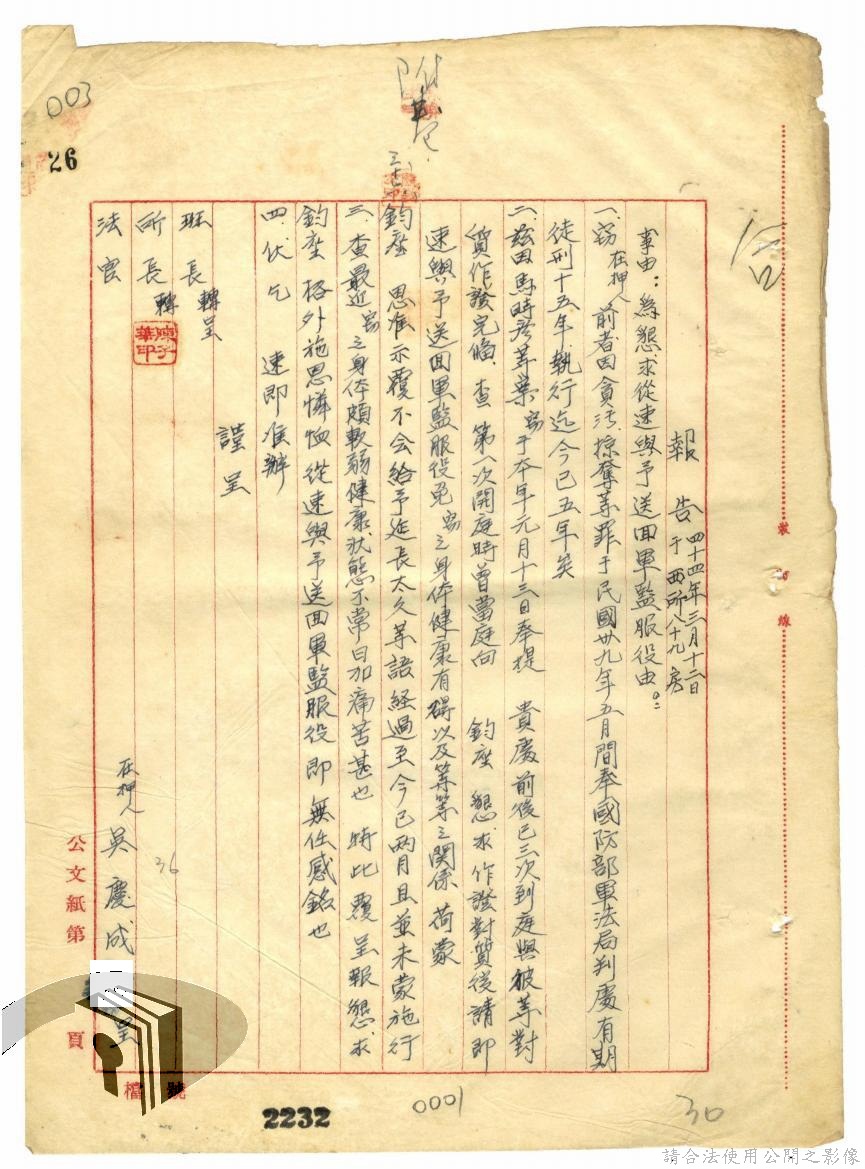 003
26
附卷
報告 四十四年三月十二日
于西所八十九房
事由：為懇求從速與予送回軍監服役由。
一、竊在押人前者因貪污、掠奪等罪于民國卅九年五月間奉國防部軍法局判處有期
徒刑十五年執行迄今已五年矣
二、茲因馬時彥等案竊于本年元月十三日奉提 貴處前後已三次到庭與彼等對
質作證完備、查第一次開庭時曾當庭向 鈞座 懇求作證對質後請即
速與予送回軍監服役免竊之身体健康有礙以及等等之關係荷蒙
鈞座 恩准示覆不会給予延長太久等語経過至今已两月且並未蒙施行
三、查最近竊之身体頗軟弱健康狀態不常日加痛苦甚也 特此覆呈報懇求
鈞座 格外施恩憐恤從速與予送回軍監服役即無任感銘也
四、伏乞 速即准辦
謹呈
班長轉呈
所長轉
法官
在押人 吳慶成 呈
36
裝訂線
公文紙第 頁
檔號
2232
0001
30
請合法使用公開之影像